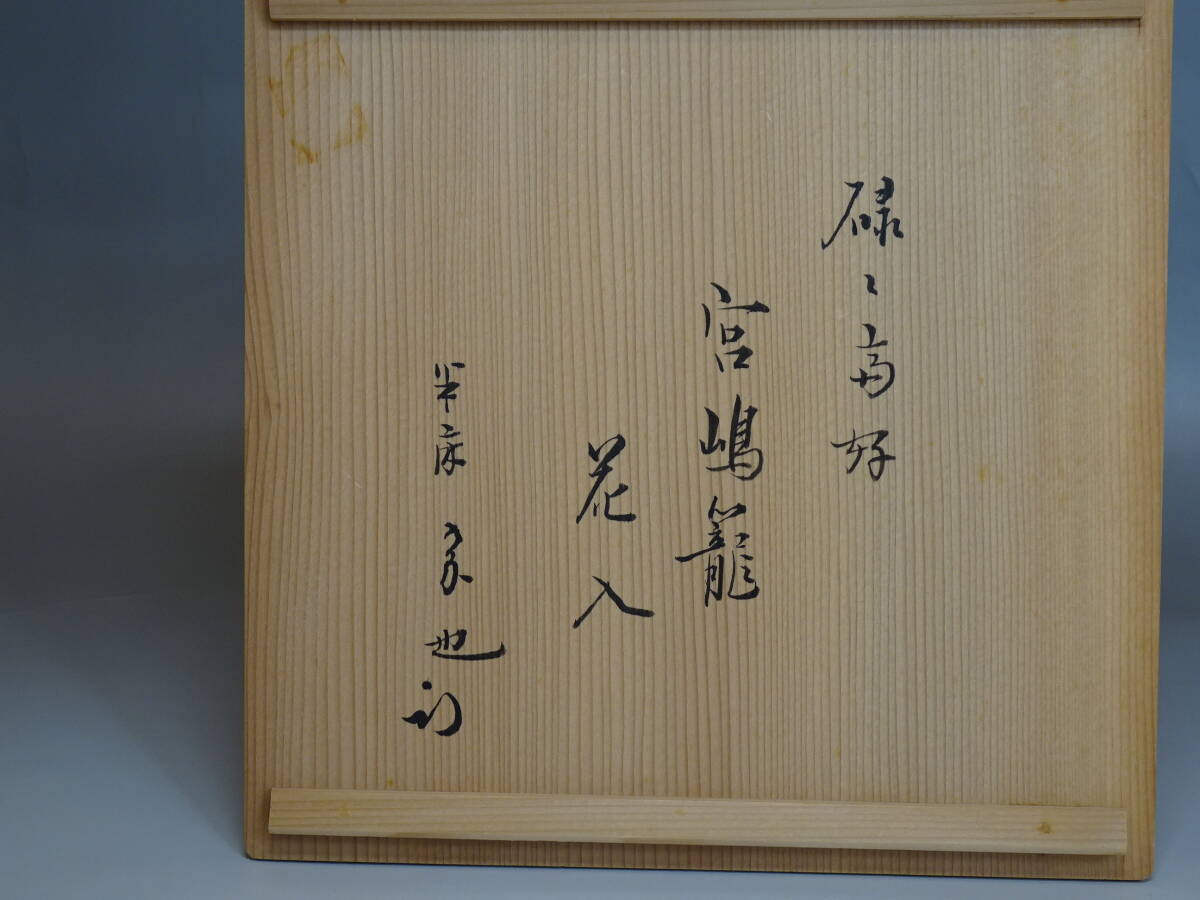 碌々斎好
宮嶋籠
花入
半床 宗也 印